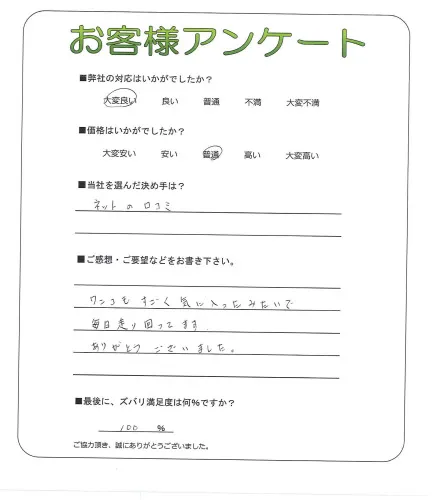 お客様アンケート
■弊社の対応はいかがでしたか？
大変良い 良い 普通 不満 大変不満
■価格はいかがでしたか？
大変安い 安い 普通 高い 大変高い
■当社を選んだ決め手は？
ネットの口コミ
■ご感想・ご要望などをお書き下さい。
ワンコもすごく気に入ったみたいで
毎日走り回ってます
ありがとうございました。
■最後に、ズバリ満足度は何％ですか？
100 ％
ご協力頂き、誠にありがとうございました。